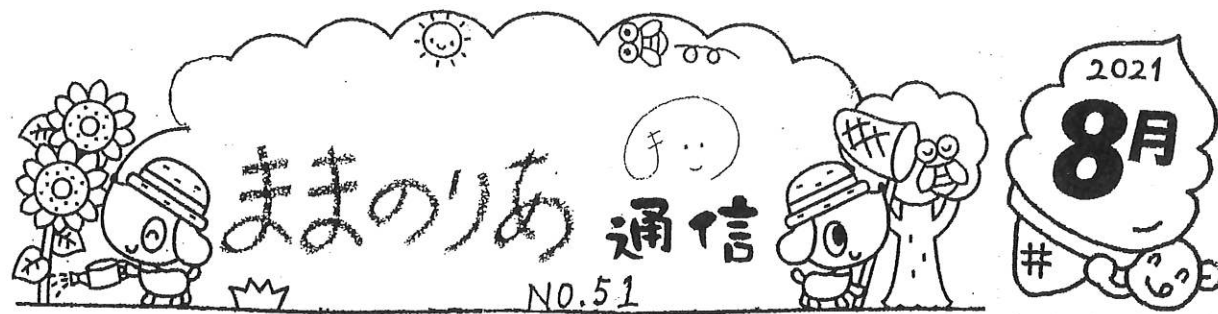 ままのりあ 通信
NO.51
2021
8月
ま